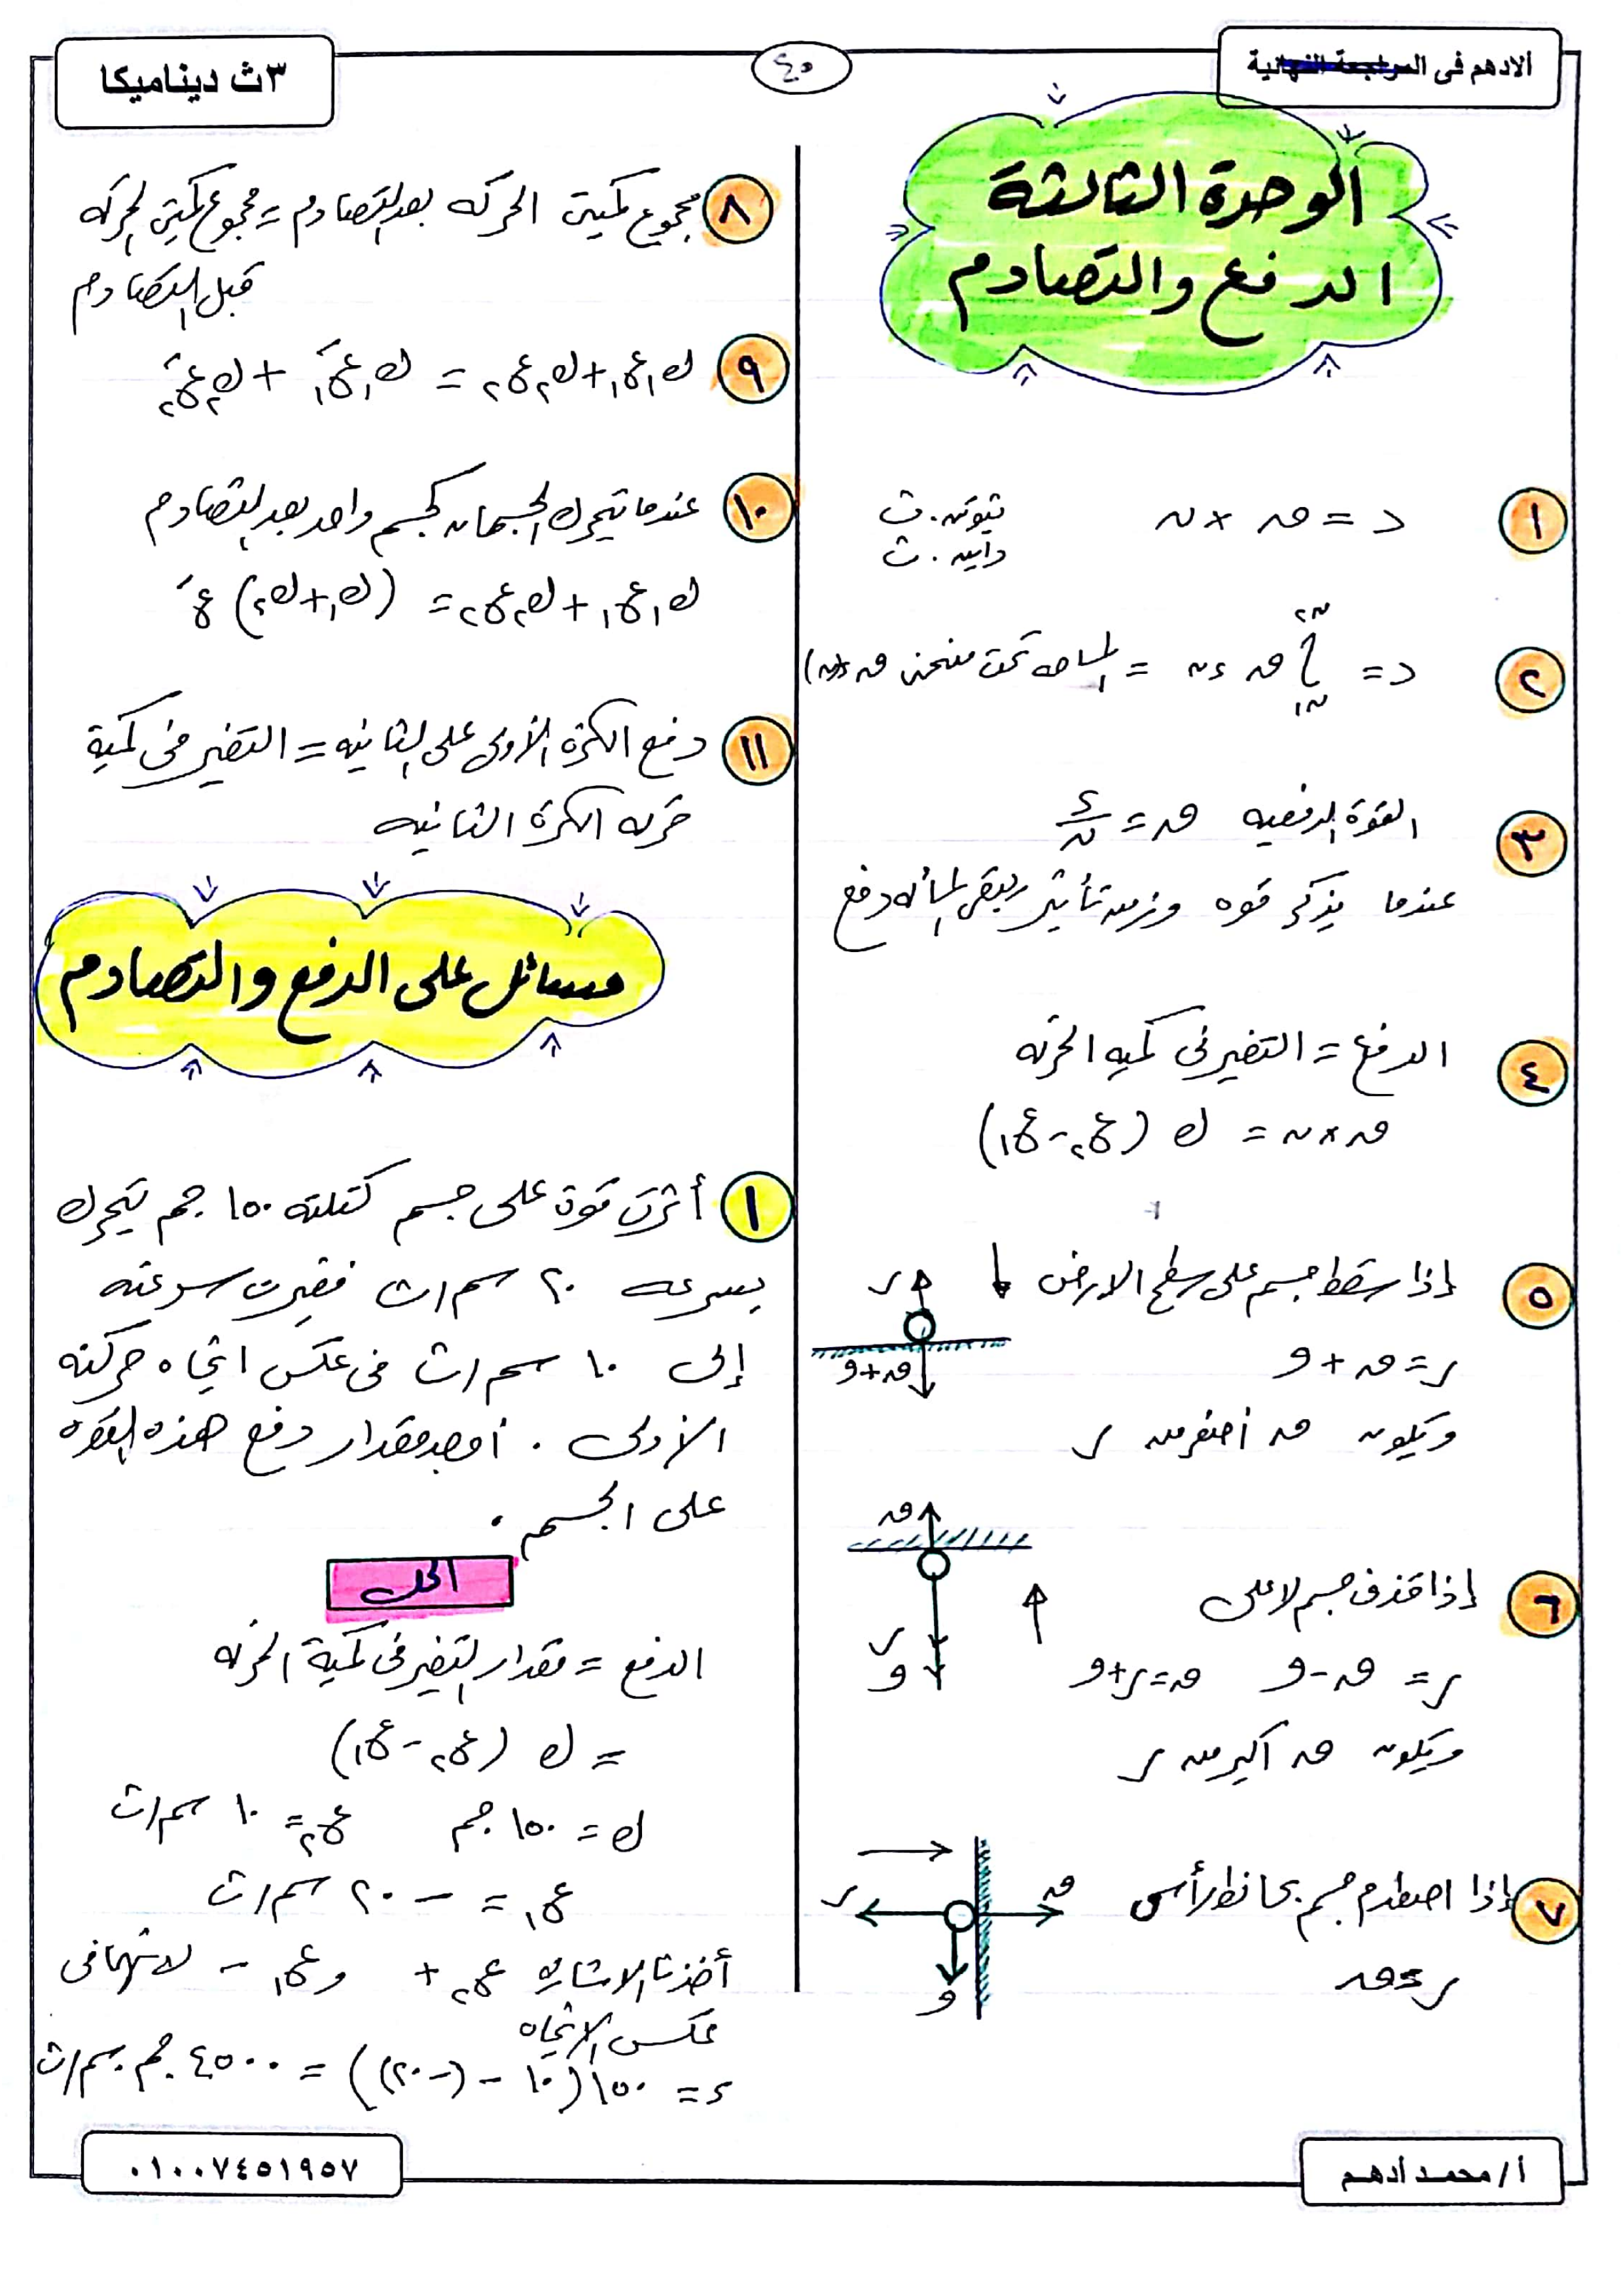 الادهم فى المراجعة النهائية
٤٥
٣ث ديناميكا
الوحدة الثالثة
الدفع والتصادم
١ د = ق × ن نيوتن.ث
داين.ث
٢ د = ∫ ق ءن = المساحه تحت منحنى ق
ن٢
ن١
٣ القوة الدفعيه ق = د/ن
عندما يذكر قوه وزمن تأثير يبقى المسأله دفع
٤ الدفع = التغير فى كميه الحركه
ق × ن = ك (ع٢ - ع١)
٥ إذا سقط جسم على سطح الارض
ر
ق+و
ر = ق + و
ويكون ق أصغر من ر
ق
٦ إذا قذف جسم لاعلى
ر
و
ر = ق - و ق = ر + و
ويكون ق اكبر من ر
٧ إذا اصطدم جسم بحائط رأسى
ر
ق
و
ر = ق
٨ مجموع كميتى الحركه بعد التصادم = مجموع كميتى الحركه
قبل التصادم
٩ ك١ع١ + ك٢ع٢ = ك١ع١َ + ك٢ع٢َ
١٠ عندما يتحرك الجسمان كجسم واحد بعد التصادم
ك١ع١ + ك٢ع٢ = (ك١ + ك٢) عَ
١١ دفع الكرة الأولى على الثانيه = التغير فى كمية
حركه الكرة الثانيه
مسائل على الدفع والتصادم
١ أثرت قوة على جسم كتلته ١٥٠ جم يتحرك
بسرعه ٢٠ سم/ث فغيرت سرعته
إلى ١٠ سم/ث فى عكس اتجاه حركته
الأولى . أوجد مقدار دفع هذه القوه
على الجسم .
الحل
الدفع = مقدار التغير فى كمية الحركه
= ك (ع٢ - ع١)
ك = ١٥٠ جم ع٢ = ١٠ سم/ث
ع١ = - ٢٠ سم/ث
أخذنا الاشاره ع٢ + وع١ - لانهما فى
عكس الاتجاه
د = ١٥٠(١٠ - (-٢٠)) = ٤٥٠٠ جم.سم/ث
أ/محمد أدهم
٠١٠٠٧٤٥١٩٥٧